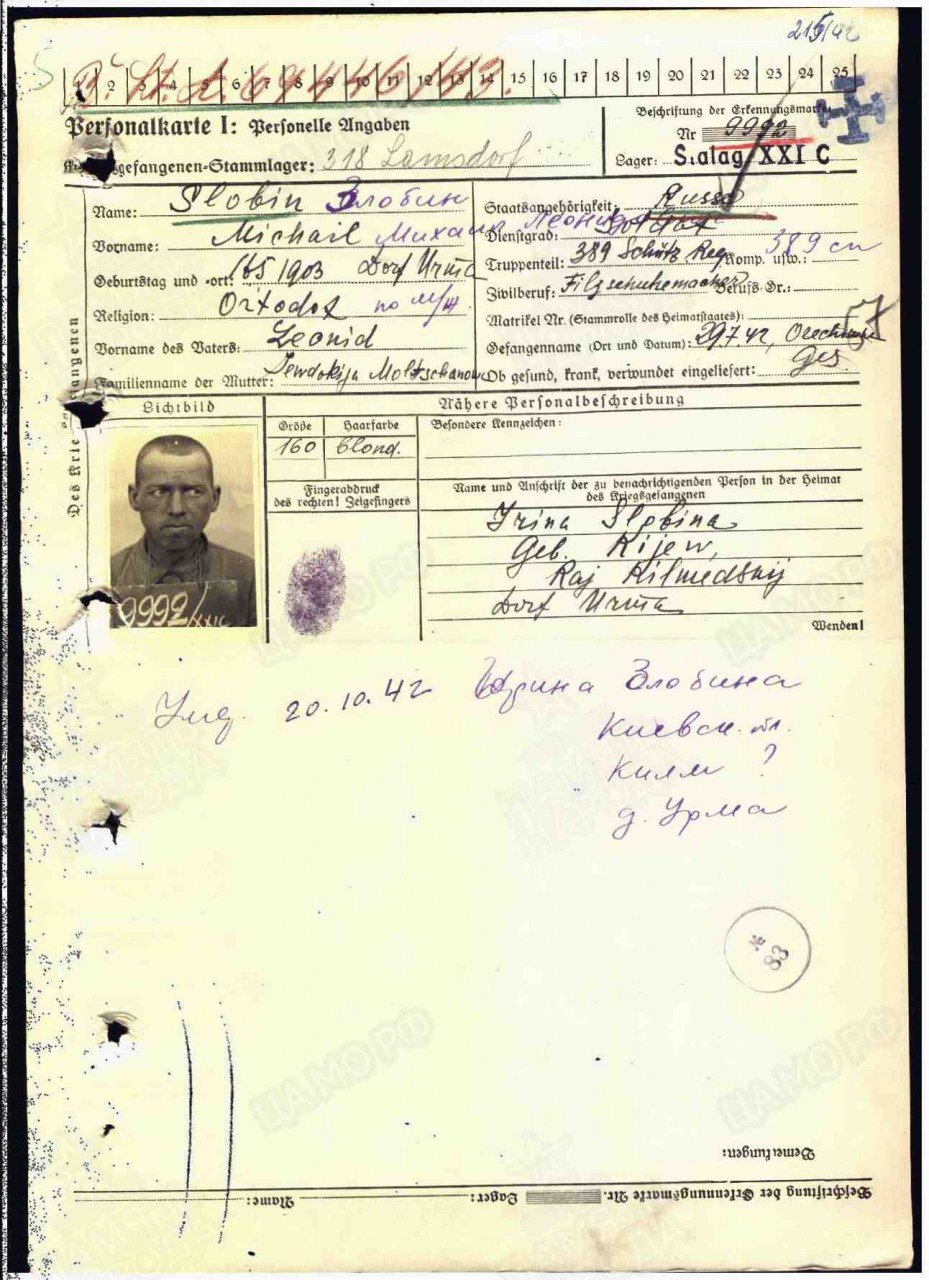 215/42
5
1 2 3 4 5 6 7 8 9 10 11 12 13 14 15 16 17 18 19 20 21 22 23 24 25
Personalkarte I: Personelle Angaben
Beschriftung der Erkennungsmarke
Nr 9992
gefangenen-Stammlager: 318 Lamsdorf
Lager: Stalag XXI C
Des Krie gefangenen
Name: Slobin Злобин
Vorname: Michail Михаил Леонид
Geburtstag und -ort: 1903 Dorf Urma
Religion: Ortodox
Vorname des Vaters: Leonid
Familienname der Mutter: Jewdokija Moltschanow
Staatsangehörigkeit: Russe
Dienstgrad: Soldat
Truppenteil: 389 Schütz Reg Komp. usw.: 389 сп
Zivilberuf: Filzschuhemacher Berufs-Gr.:
Matrikel Nr. (Stammrolle des Heimatstaates):
Gefangenname (Ort und Datum): 29742,
Ob gesund, krank, verwundet eingeliefert: Ges.
Lichtbild
Nähere Personalbeschreibung
Größe Haarfarbe Besondere Kennzeichen:
160 blond.
Fingerabdruck
des rechten! Zeigefingers
Name und Anschrift der zu benachrichtigenden Person in der Heimat
des Kriegsgefangenen
Irina Slobina
Geb. Kijew,
Raj Kilmedskij
Dorf Urma
9992/XXI C
Wenden!
20.10.42 Ирина Злобина
Киевск. обл.
Килм ?
д. Урма
83
Bemerkungen:
Beschriftung der Erkennungsmarke Nr. Lager: Name:
ЦАМО РФ
ПАМЯТЬ НАРОДА